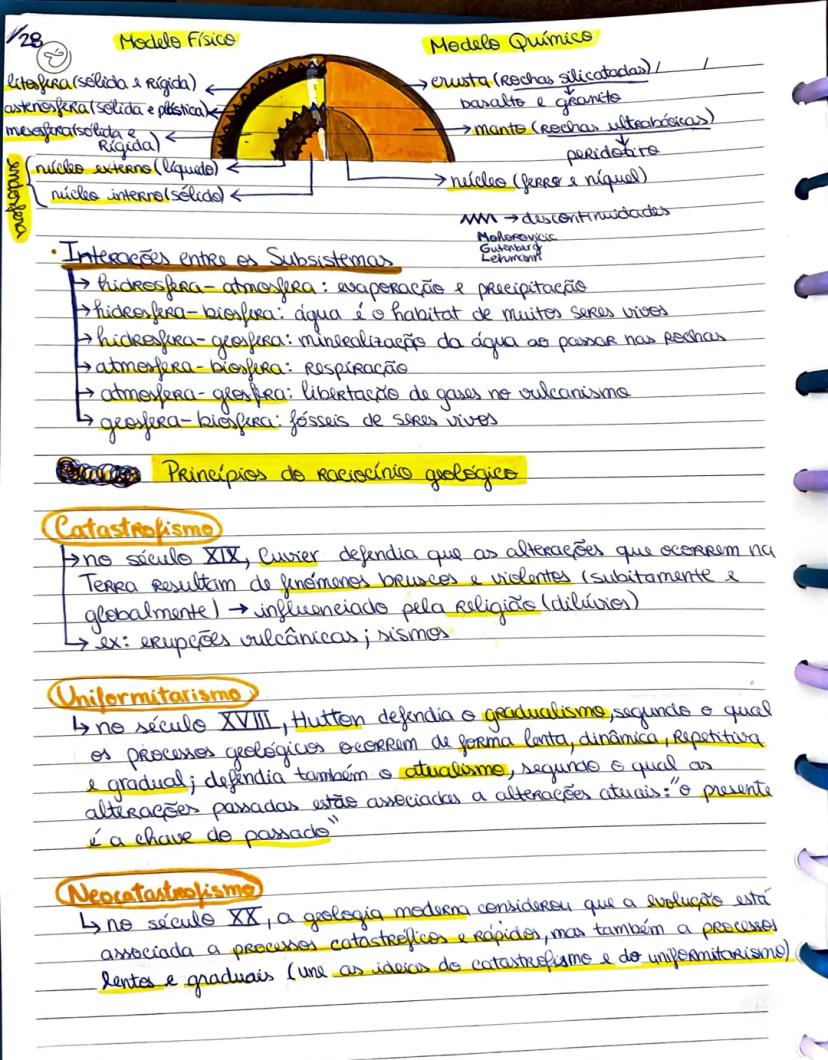 1/28
Modelo Físico
Modelo Químico
litosfera (sólida e rígida)
astenosfera (sólida e plástica)
mesosfera (sólida e
Rígida)
endosfera
núcleo externo (líquido)
núcleo interno (sólido)
crusta (Rochas silicatadas)
basalto e granito
manto (Rochas ultrabásicas)
peridotito
núcleo (ferro e níquel)
→ descontinuidades
Mohorovicic
Gutenburg
Lehmann
• Interações entre os Subsistemas
→ hidrosfera - atmosfera: evaporação e precipitação
→ hidrosfera - biosfera: água é o habitat de muitos seres vivos
→ hidrosfera - geosfera: mineralização da água ao passar nas rochas
→ atmosfera - biosfera: respiração
→ atmosfera - geosfera: libertação de gases no vulcanismo
→ geosfera - biosfera: fósseis de seres vivos
Princípios do raciocínio geológico
Catastrofismo
→ no século XIX, Cuvier defendia que as alterações que ocorrem na
Terra resultam de fenómenos bruscos e violentos (subitamente e
globalmente) → influenciado pela religião (dilúvios)
→ ex: erupções vulcânicas; sismos
Uniformitarismo
↳ no século XVIII, Hutton defendia o gradualismo, segundo o qual
os processos geológicos ocorrem de forma lenta, dinâmica, repetitiva
e gradual; defendia também o atualismo, segundo o qual as
alterações passadas estão associadas a alterações atuais: "o presente
é a chave do passado"
Neocatastrofismo
↳ no século XX, a geologia moderna considerou que a evolução está
associada a processos catastróficos e rápidos, mas também a processos
lentos e graduais (une as ideias do catastrofismo e do uniformitarismo)